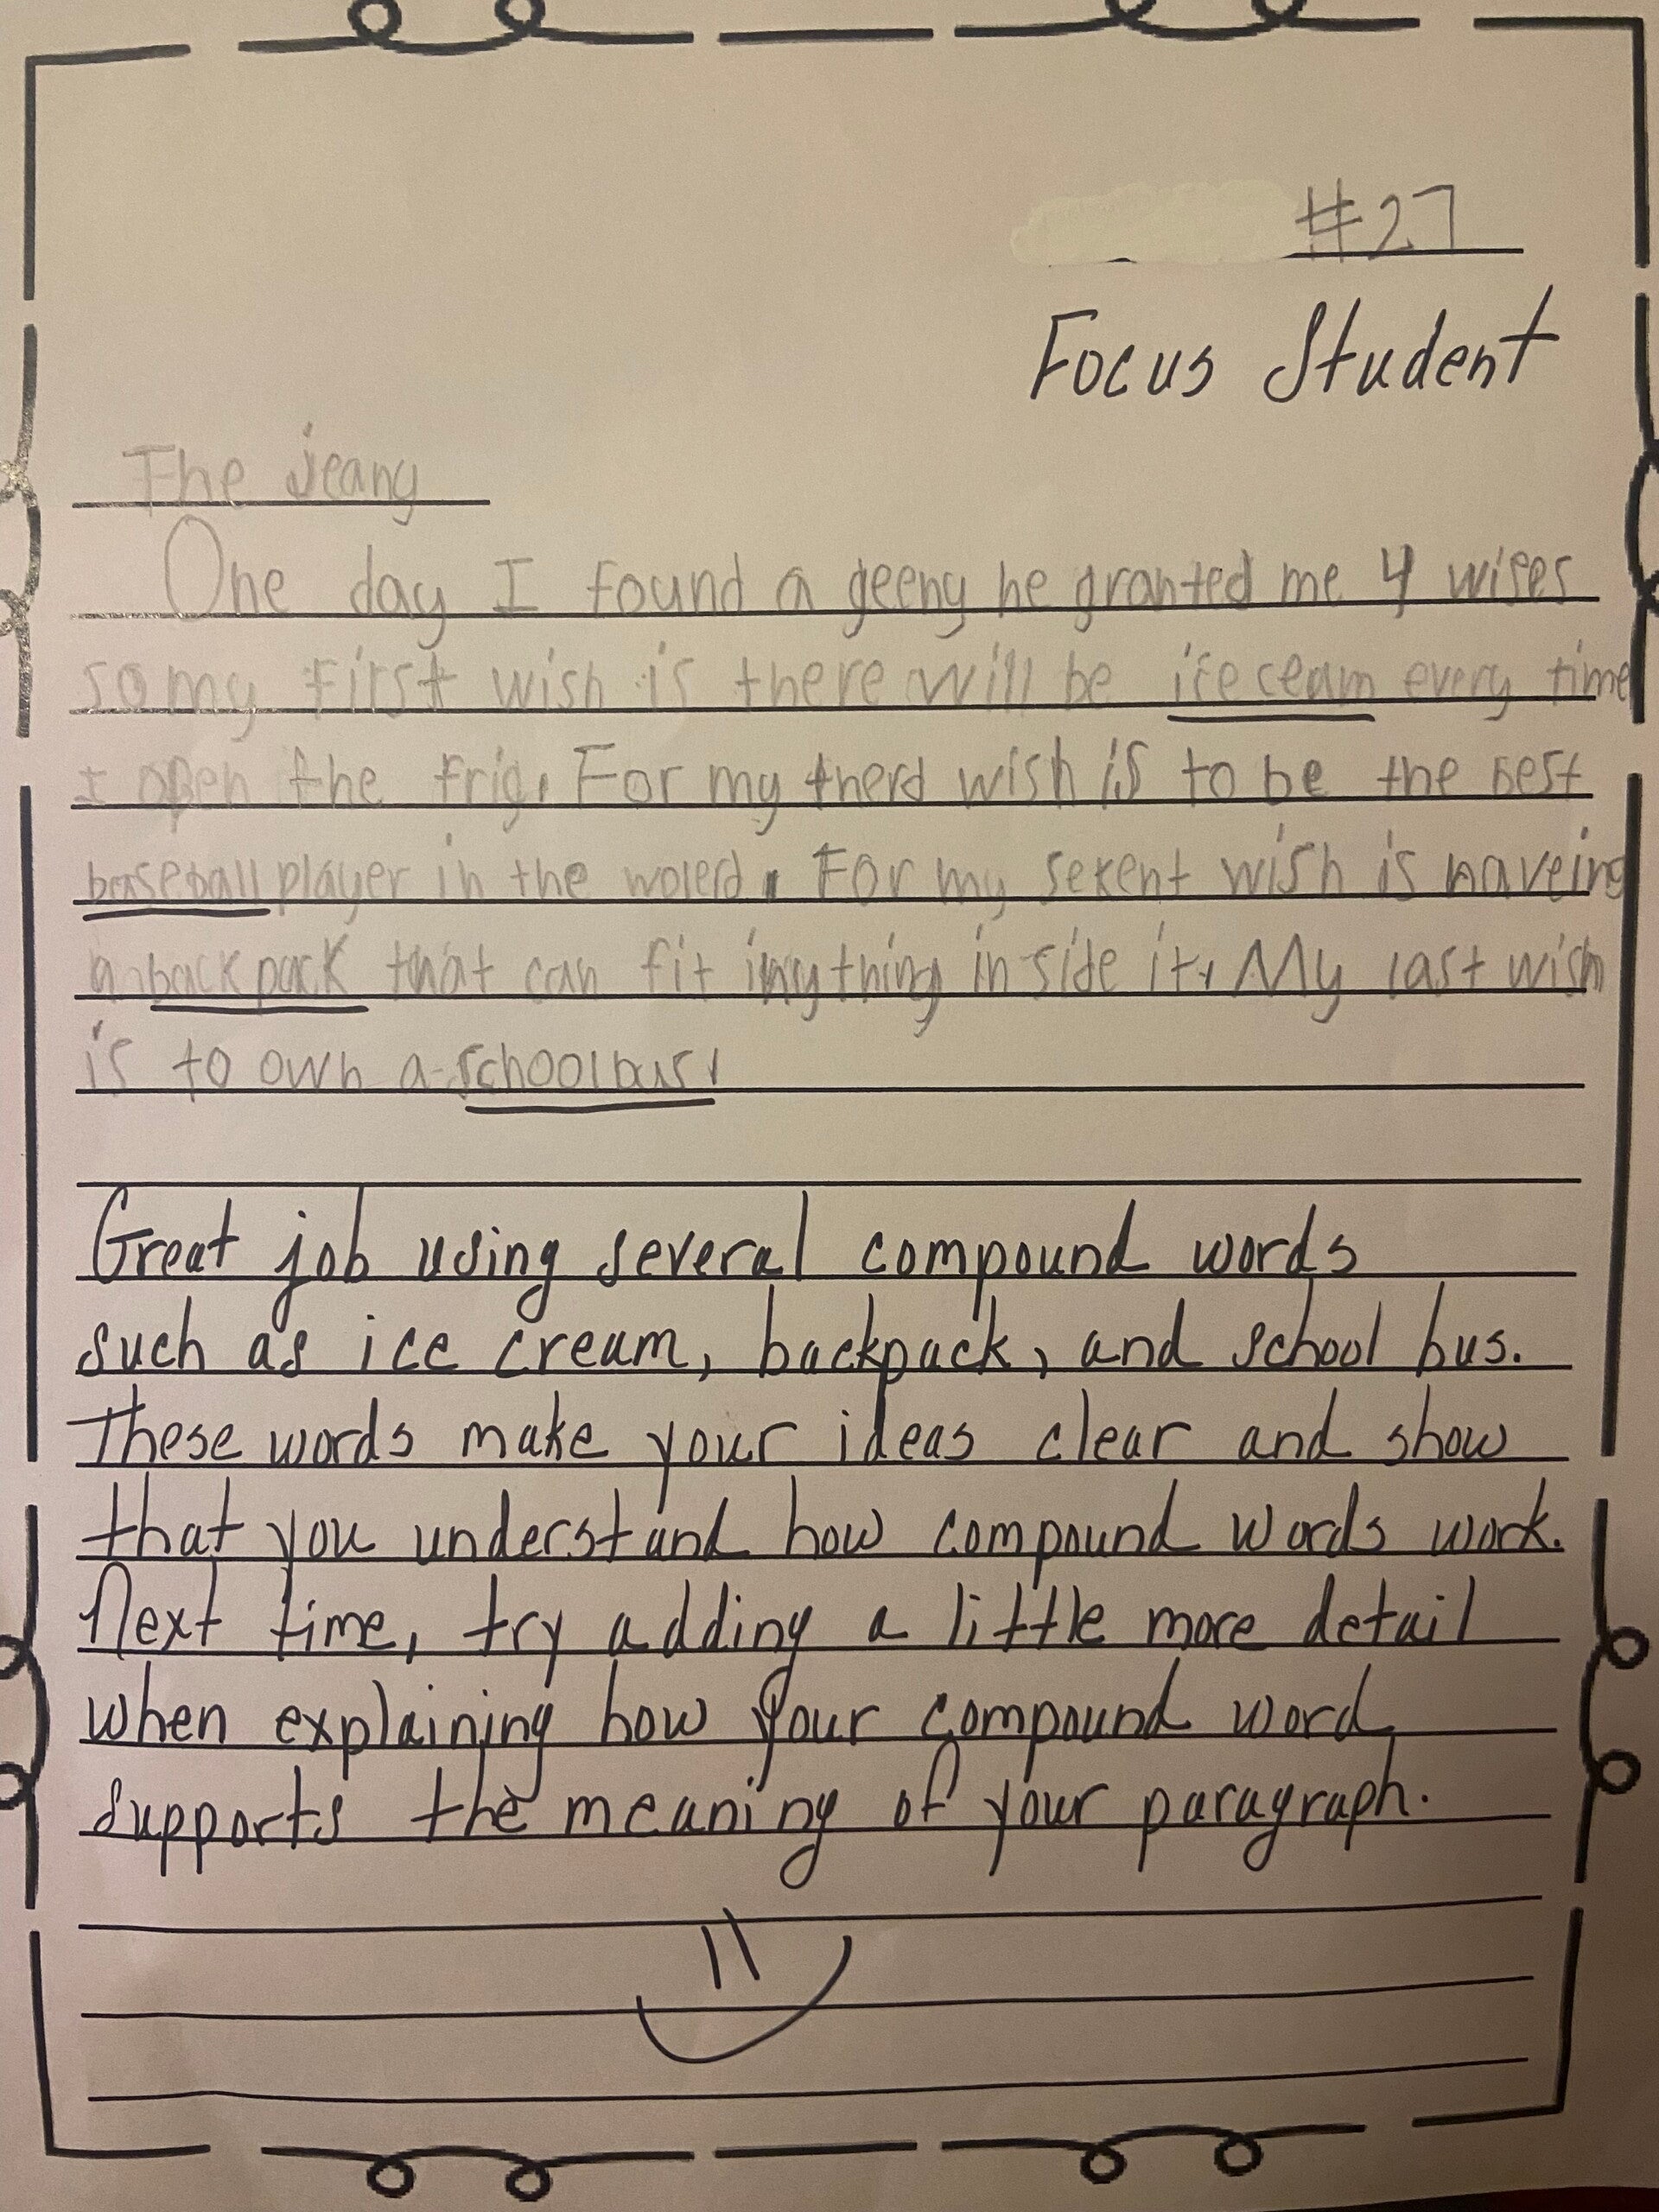 #27
Focus Student
The jeany
One day I found a geeny he granted me 4 wises
so my first wish is there will be ice ceam every time
I open the frig. For my therd wish is to be the best
baseball player in the wolerd. For my sekent wish is haveing
a backpack that can fit inything inside it. My last wish
is to own a schoolbus.
Great job using several compound words
such as ice cream, backpack, and school bus.
These words make your ideas clear and show
that you understand how compound words work.
Next time, try adding a little more detail
when explaining how your compound word
supports the meaning of your paragraph.